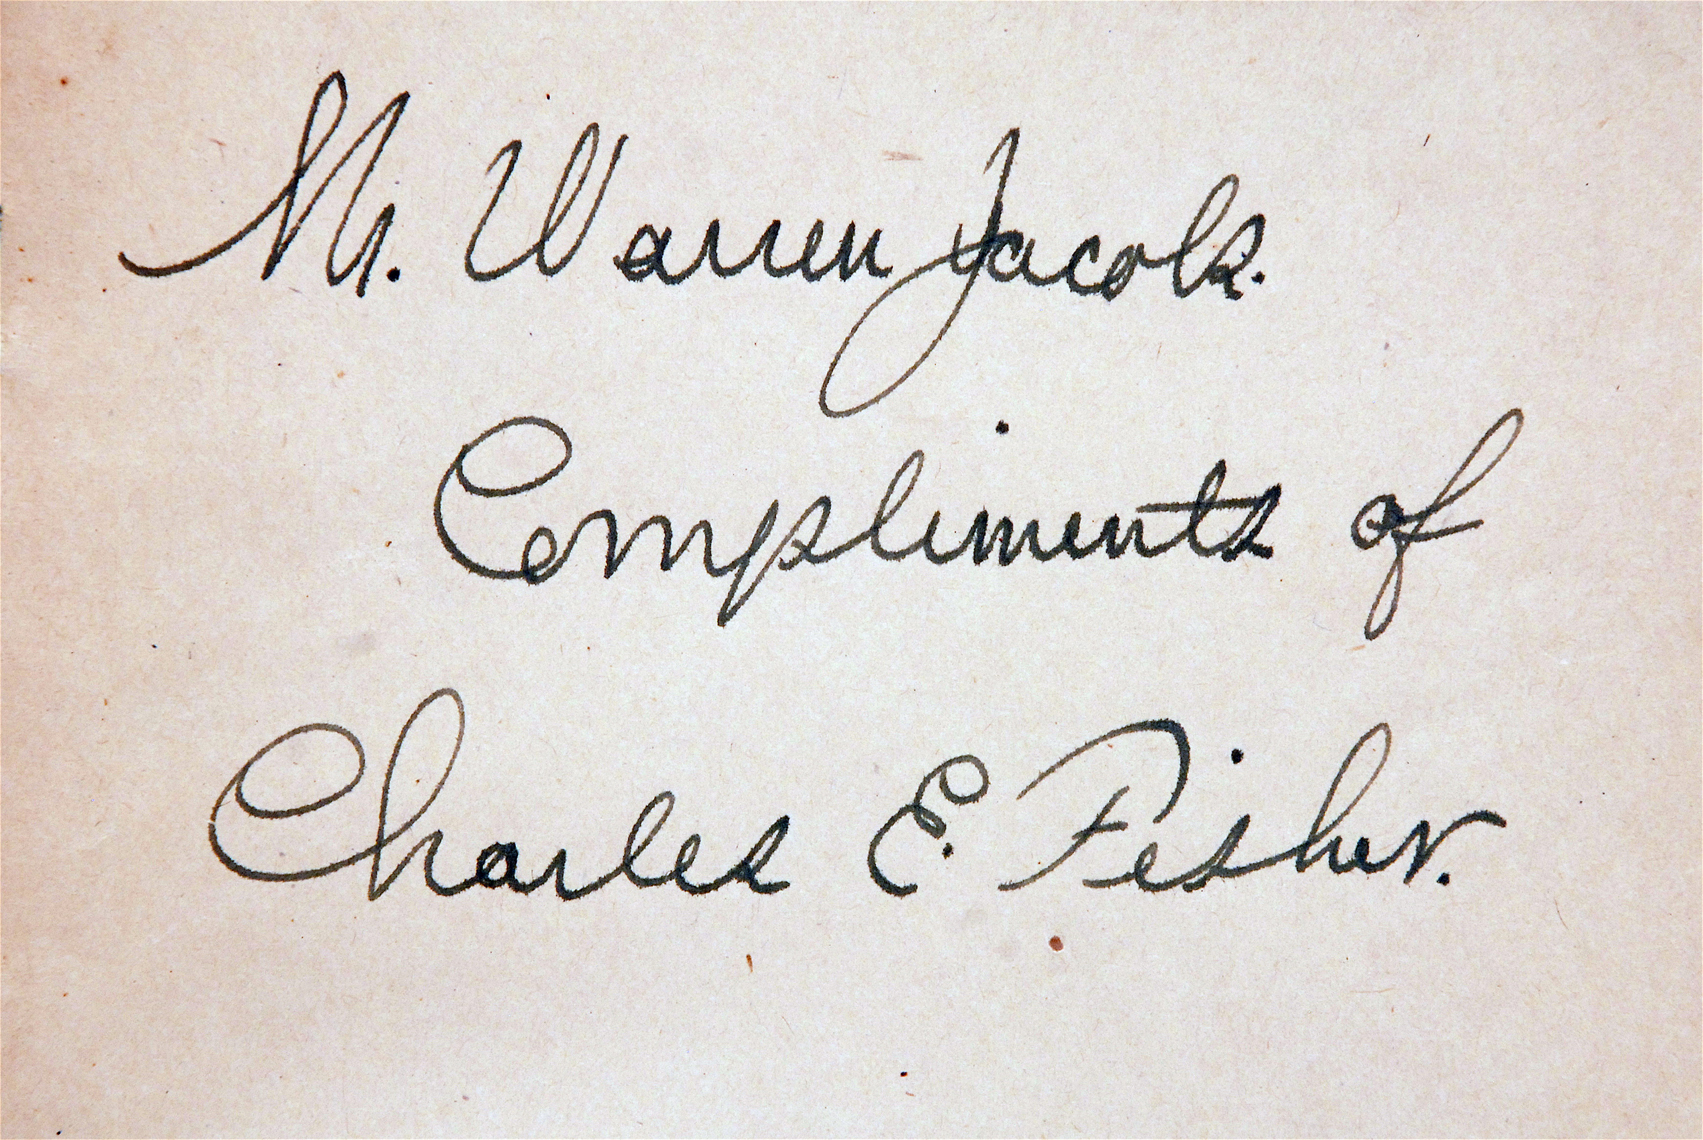 Mr. Warren Jacobs.
Compliments of
Charles E. Fisher.